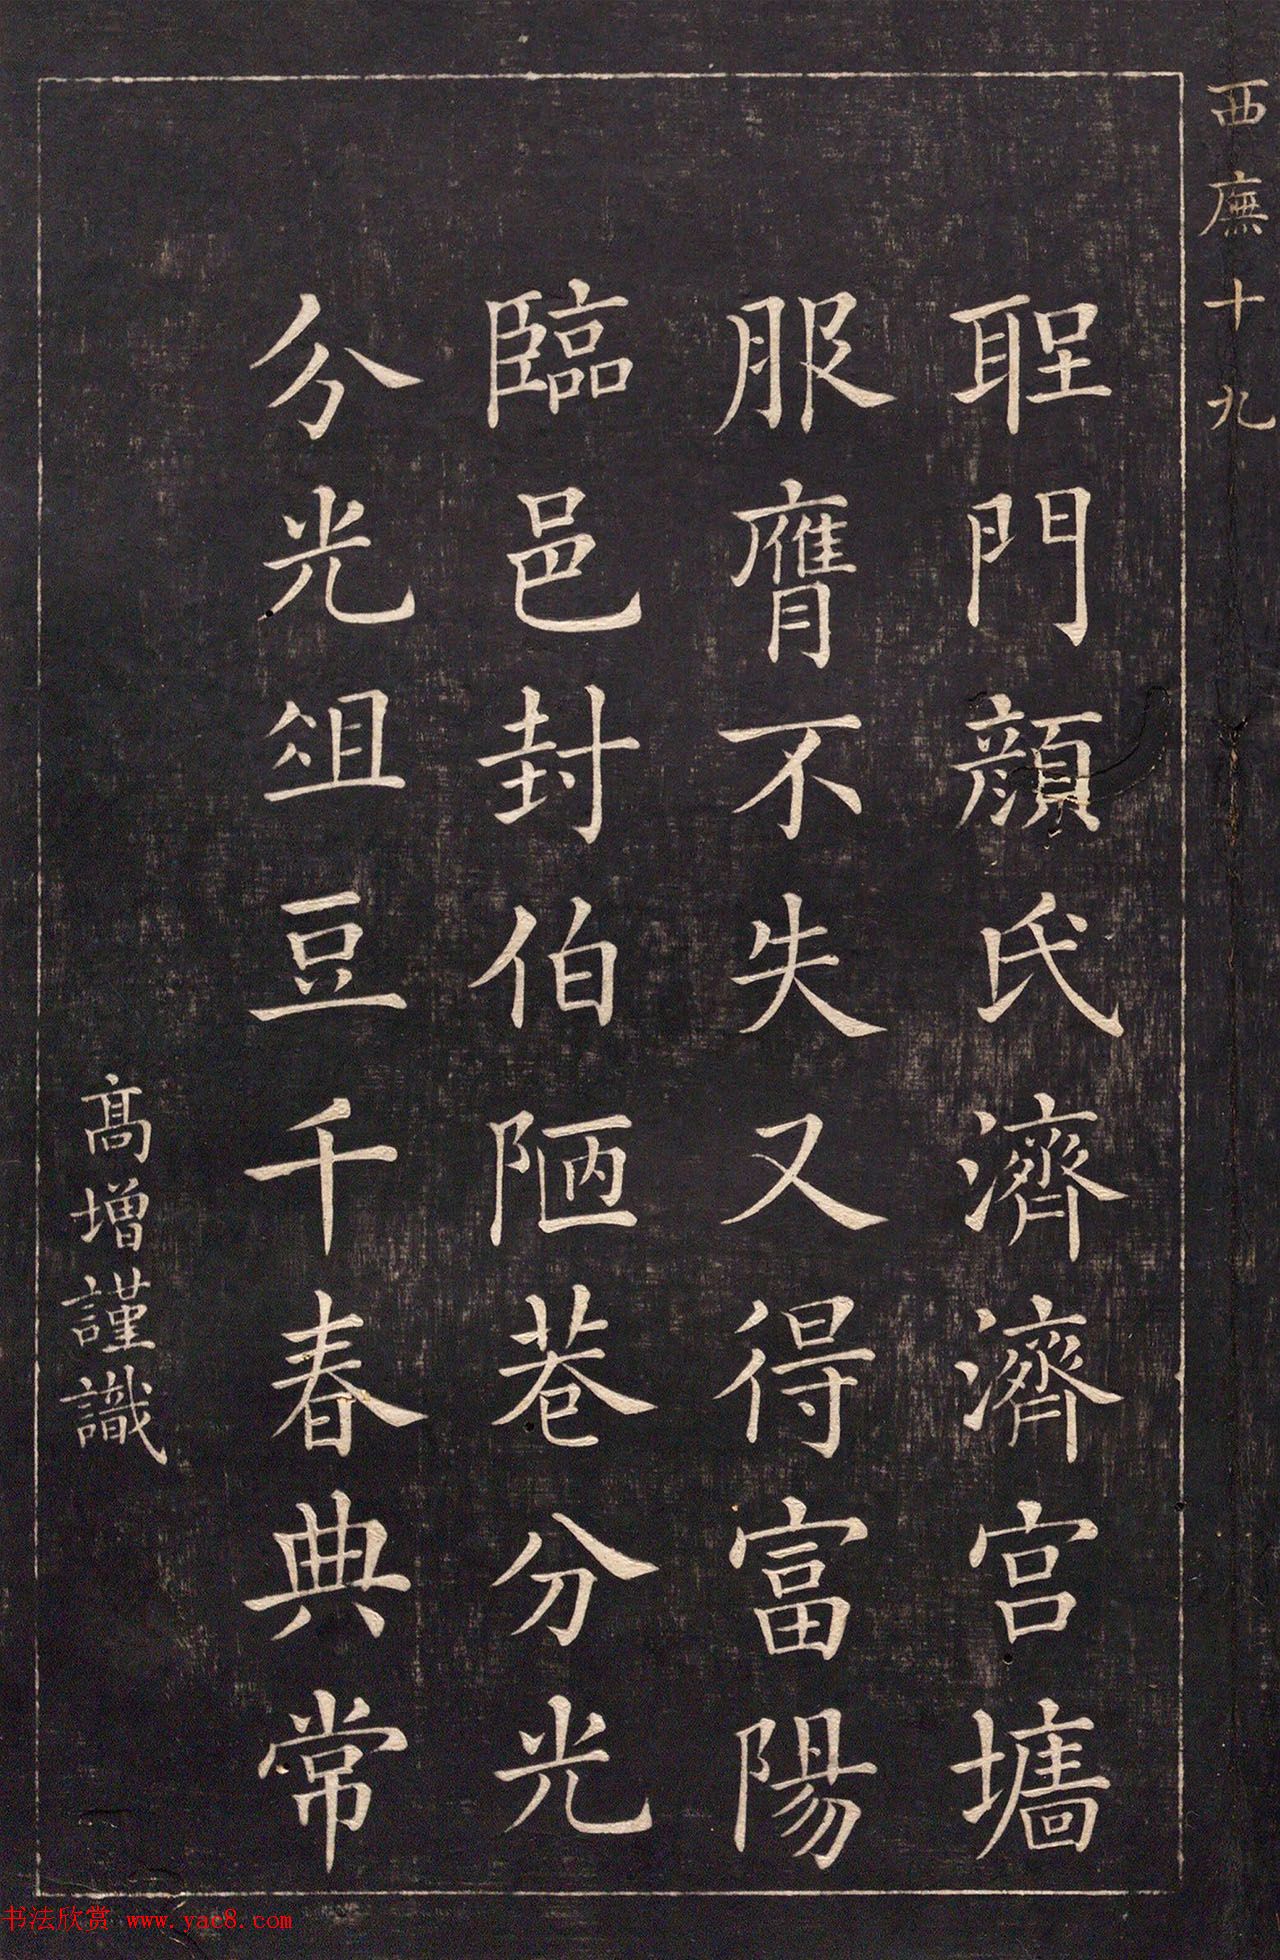 西廡十九
聖門顏氏濟濟宮墻
服膺不失又得富陽
臨邑封伯陋巷分光
分光俎豆千春典常
高增謹識
书法欣赏 www.yac8.com